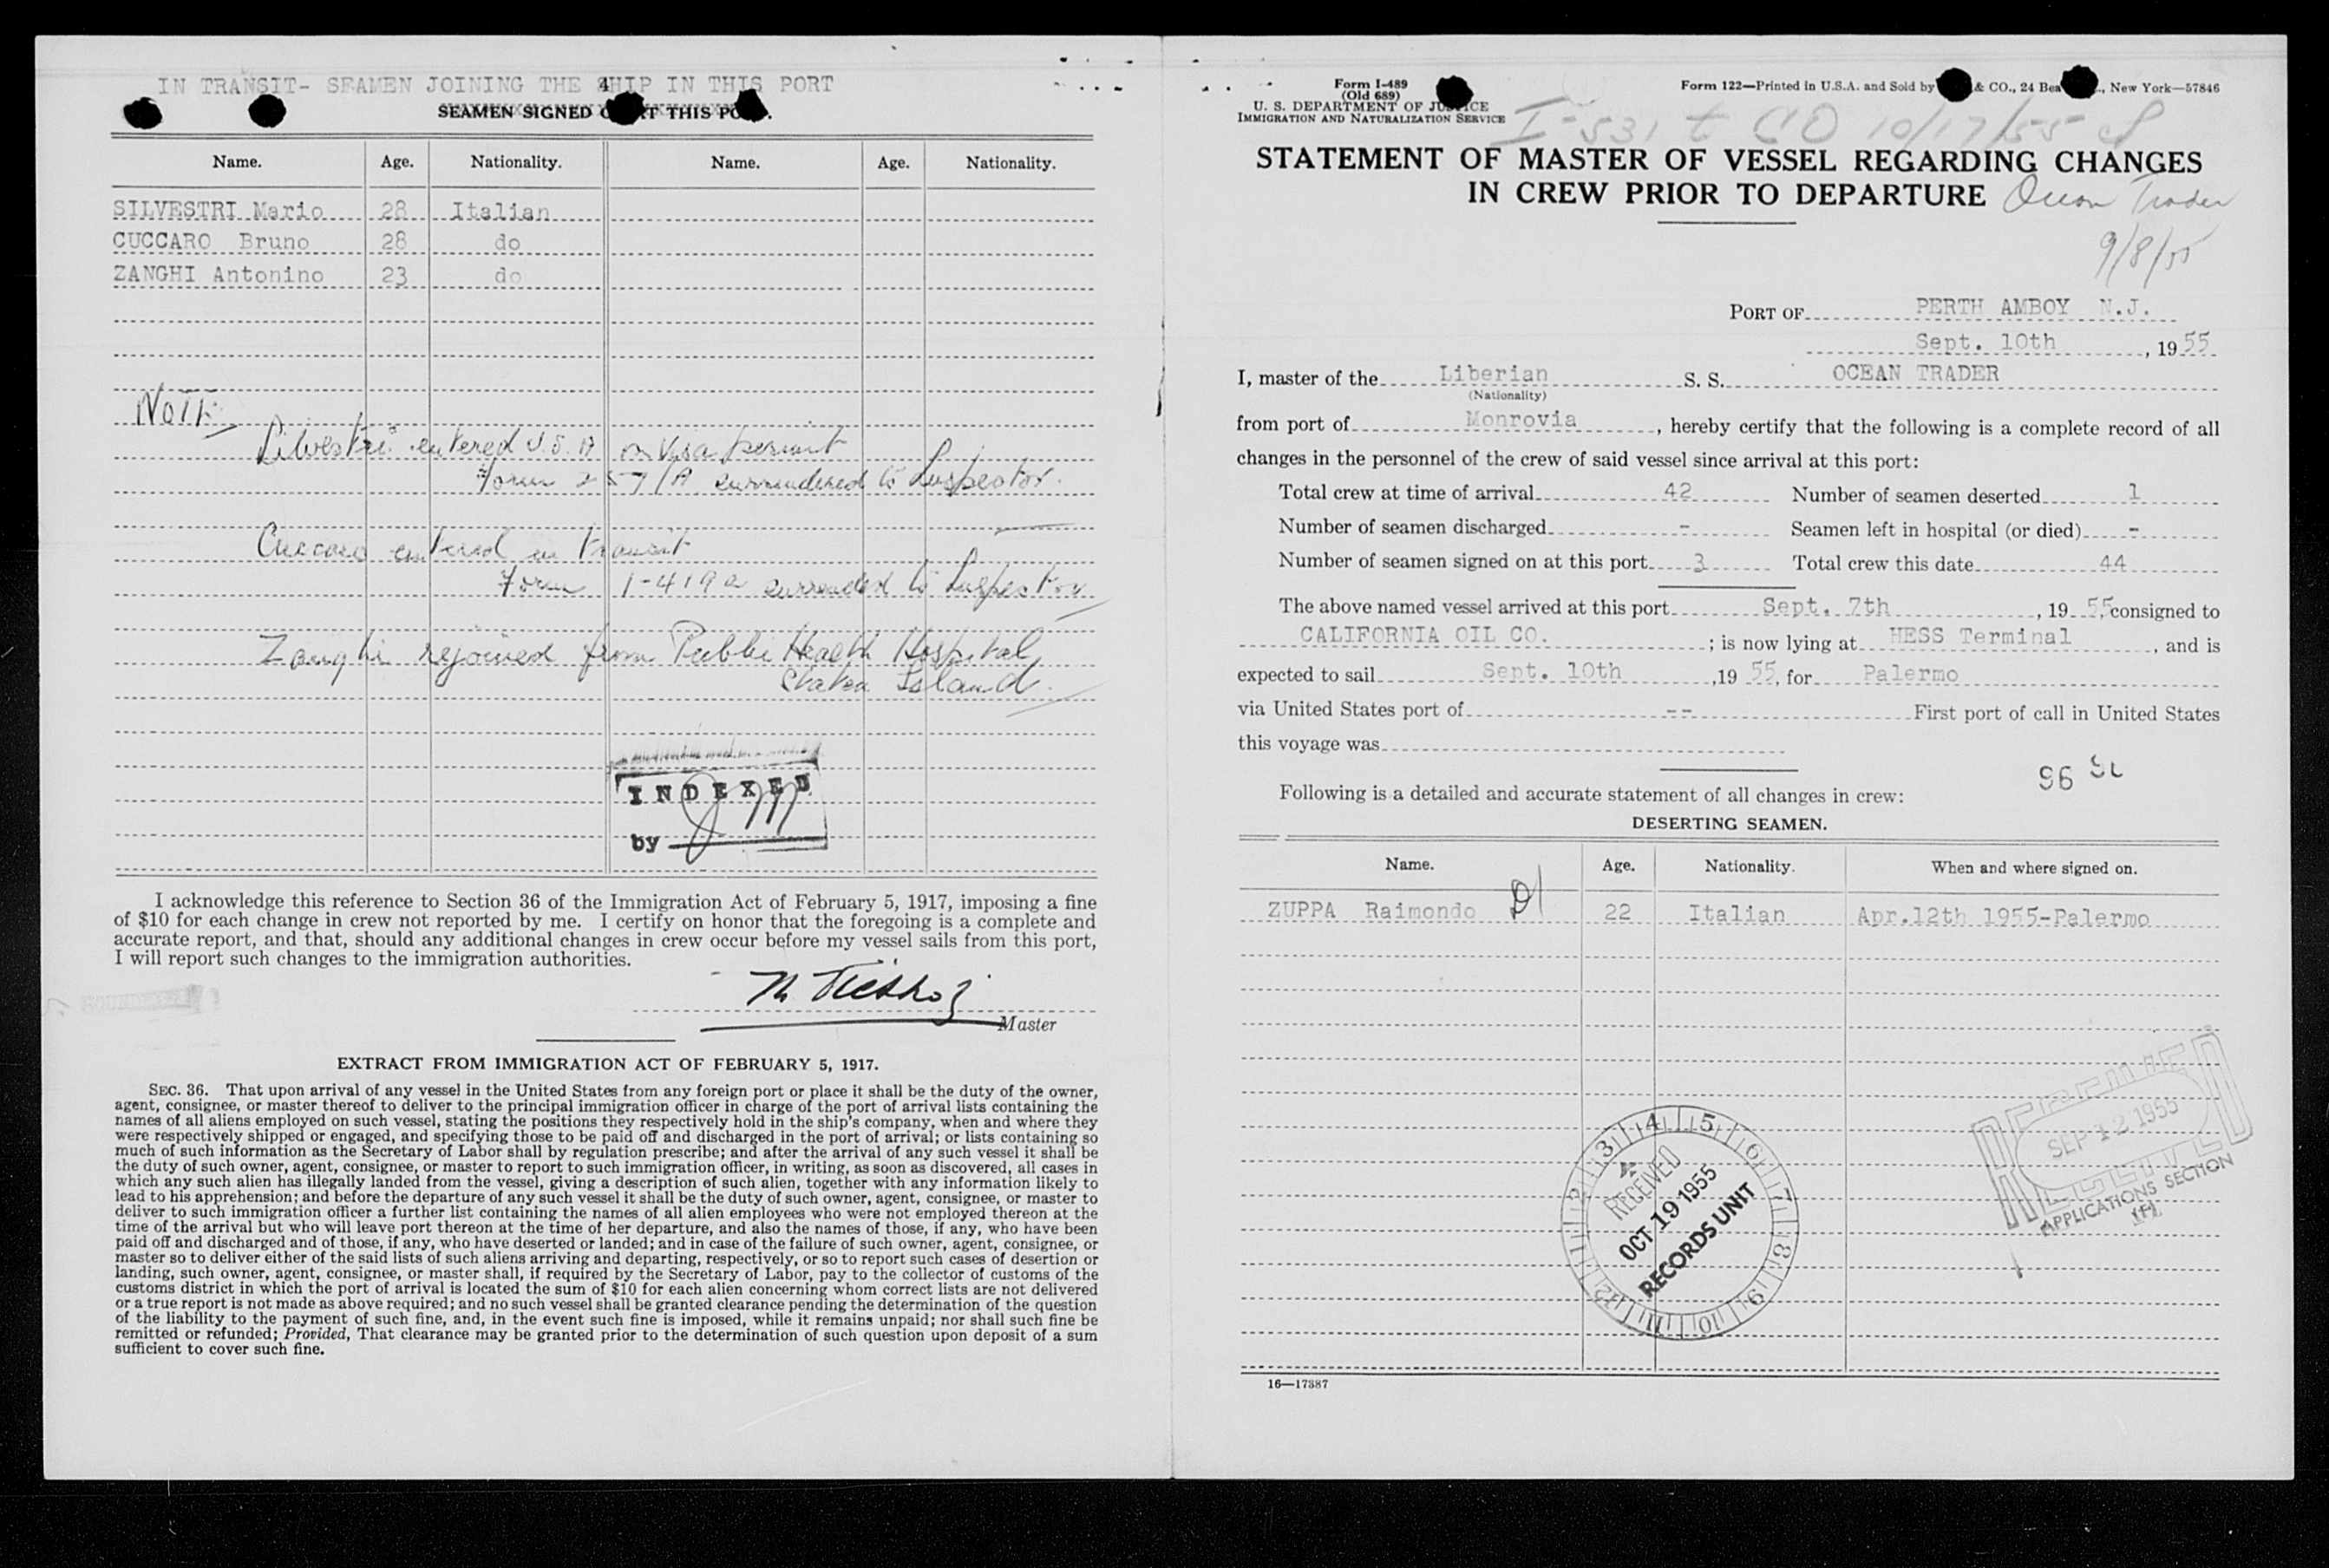 IN TRANSIT- SEAMEN JOINING THE SHIP IN THIS PORT
4
SEAMEN SIGNED THIS
Name. Age. Nationality. Name. Age. Nationality.
SILVESTRI Mario 28 Italian
CUCCARO Bruno 28 do
ZANGHI Antonino 23 do
NOTE
Silvestri entered U.S.A on Visa permit
Form 257/A surrendered to Inspector.
Cuccaro entered in transit
Form I-419a surrended to Inspector
Zanghi rejoined from Public Health Hospital
Staten Island.
INDEXED
by
I acknowledge this reference to Section 36 of the Immigration Act of February 5, 1917, imposing a fine
of $10 for each change in crew not reported by me. I certify on honor that the foregoing is a complete and
accurate report, and that, should any additional changes in crew occur before my vessel sails from this port,
I will report such changes to the immigration authorities.
Master
EXTRACT FROM IMMIGRATION ACT OF FEBRUARY 5, 1917.
SEC. 36. That upon arrival of any vessel in the United States from any foreign port or place it shall be the duty of the owner,
agent, consignee, or master thereof to deliver to the principal immigration officer in charge of the port of arrival lists containing the
names of all aliens employed on such vessel, stating the positions they respectively hold in the ship's company, when and where they
were respectively shipped or engaged, and specifying those to be paid off and discharged in the port of arrival; or lists containing so
much of such information as the Secretary of Labor shall by regulation prescribe; and after the arrival of any such vessel it shall be
the duty of such owner, agent, consignee, or master to report to such immigration officer, in writing, as soon as discovered, all cases in
which any such alien has illegally landed from the vessel, giving a description of such alien, together with any information likely to
lead to his apprehension; and before the departure of any such vessel it shall be the duty of such owner, agent, consignee, or master to
deliver to such immigration officer a further list containing the names of all alien employees who were not employed thereon at the
time of the arrival but who will leave port thereon at the time of her departure, and also the names of those, if any, who have been
paid off and discharged and of those, if any, who have deserted or landed; and in case of the failure of such owner, agent, consignee, or
master so to deliver either of the said lists of such aliens arriving and departing, respectively, or so to report such cases of desertion or
landing, such owner, agent, consignee, or master shall, if required by the Secretary of Labor, pay to the collector of customs of the
customs district in which the port of arrival is located the sum of $10 for each alien concerning whom correct lists are not delivered
or a true report is not made as above required; and no such vessel shall be granted clearance pending the determination of the question
of the liability to the payment of such fine, and, in the event such fine is imposed, while it remains unpaid; nor shall such fine be
remitted or refunded; Provided, That clearance may be granted prior to the determination of such question upon deposit of a sum
sufficient to cover such fine.
Form I-489
(Old 689)
U. S. DEPARTMENT OF JUSTICE
IMMIGRATION AND NATURALIZATION SERVICE
Form 122—Printed in U.S.A. and Sold by & CO., 24 New York—57846
I-531 t CO 10/17/55
STATEMENT OF MASTER OF VESSEL REGARDING CHANGES
IN CREW PRIOR TO DEPARTURE Ocean Trader
9/8/55
PORT OF PERTH AMBOY N.J.
Sept. 10th, 1955
I, master of the Liberian S. S. OCEAN TRADER
(Nationality)
from port of Monrovia, hereby certify that the following is a complete record of all
changes in the personnel of the crew of said vessel since arrival at this port:
Total crew at time of arrival 42 Number of seamen deserted 1
Number of seamen discharged - Seamen left in hospital (or died) -
Number of seamen signed on at this port 3 Total crew this date 44
The above named vessel arrived at this port Sept. 7th, 19 55, consigned to
CALIFORNIA OIL CO.; is now lying at HESS Terminal, and is
expected to sail Sept. 10th, 19 55, for Palermo
via United States port of -- First port of call in United States
this voyage was
96
Following is a detailed and accurate statement of all changes in crew:
DESERTING SEAMEN.
Name. Age. Nationality. When and where signed on.
ZUPPA Raimondo 22 Italian Apr.12th 1955-Palermo
1 2 3 4 5 6 7 8 9 10 11 12
RECEIVED
OCT 19 1955
RECORDS UNIT
RECEIVED
SEP 12 1955
APPLICATIONS SECTION
16—17387